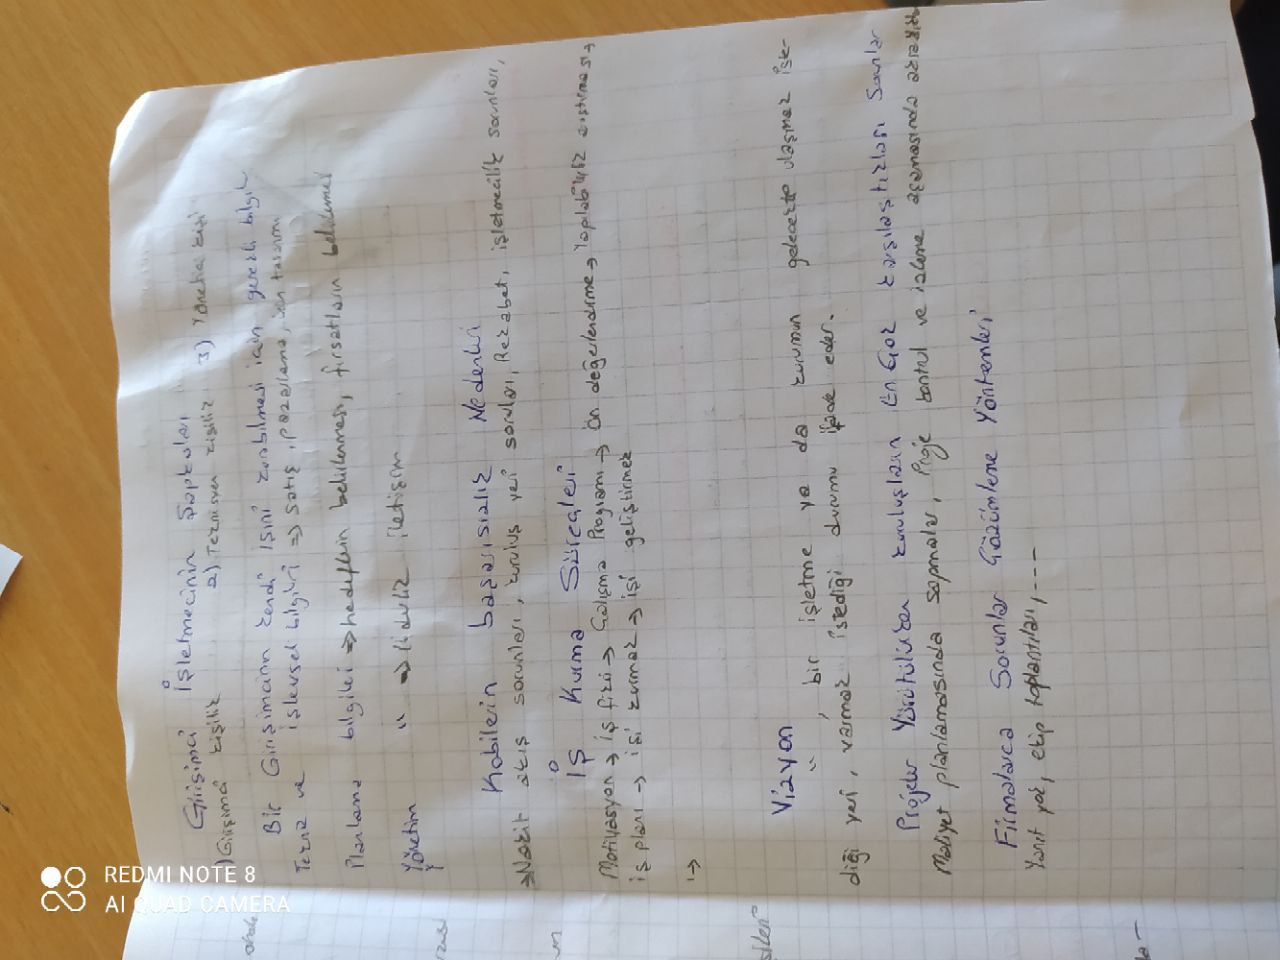 Girişimci İşletmecinin Şapkaları
1) Girişimci kişilik 2) Teknisyen kişilik 3) Yönetici kişi
Bir Girişimcinin kendi işini kurabilmesi için gerekli bilgiler
Teknik ve işlevsel bilgileri => satış, pazarlama, ürün tasarımı
Planlama bilgileri => hedeflerin belirlenmesi, fırsatların belirlenmesi
Yönetim " => liderlik iletişim
Kobilerin başarısızlık Nedenleri
=> Nakit akış sorunları, kuruluş yeri soruları, Rekabet, işletmecilik sorunları,
İş Kurma Süreçleri
Motivasyon → iş fikri → Çalışma Programı → Ön değerlendirme → Yapılabilirlik araştırması →
iş planı → işi kurmak → işi geliştirmek
1→
Vizyon
" , bir işletme ya da kurumun gelecekte ulaşmak iste-
diği yeri, varmak istediği durumu ifade eder.
Projeler Yürütülürken kuruluşların En Çok karşılaştıkları Sorunlar
Maliyet planlamasında sapmalar, Proje kontrol ve izleme aşamasında
Firmalarca Sorunlar Çözümleme Yöntemleri
Yanıt yok, ekip toplantıları, ----
REDMI NOTE 8
AI QUAD CAMERA